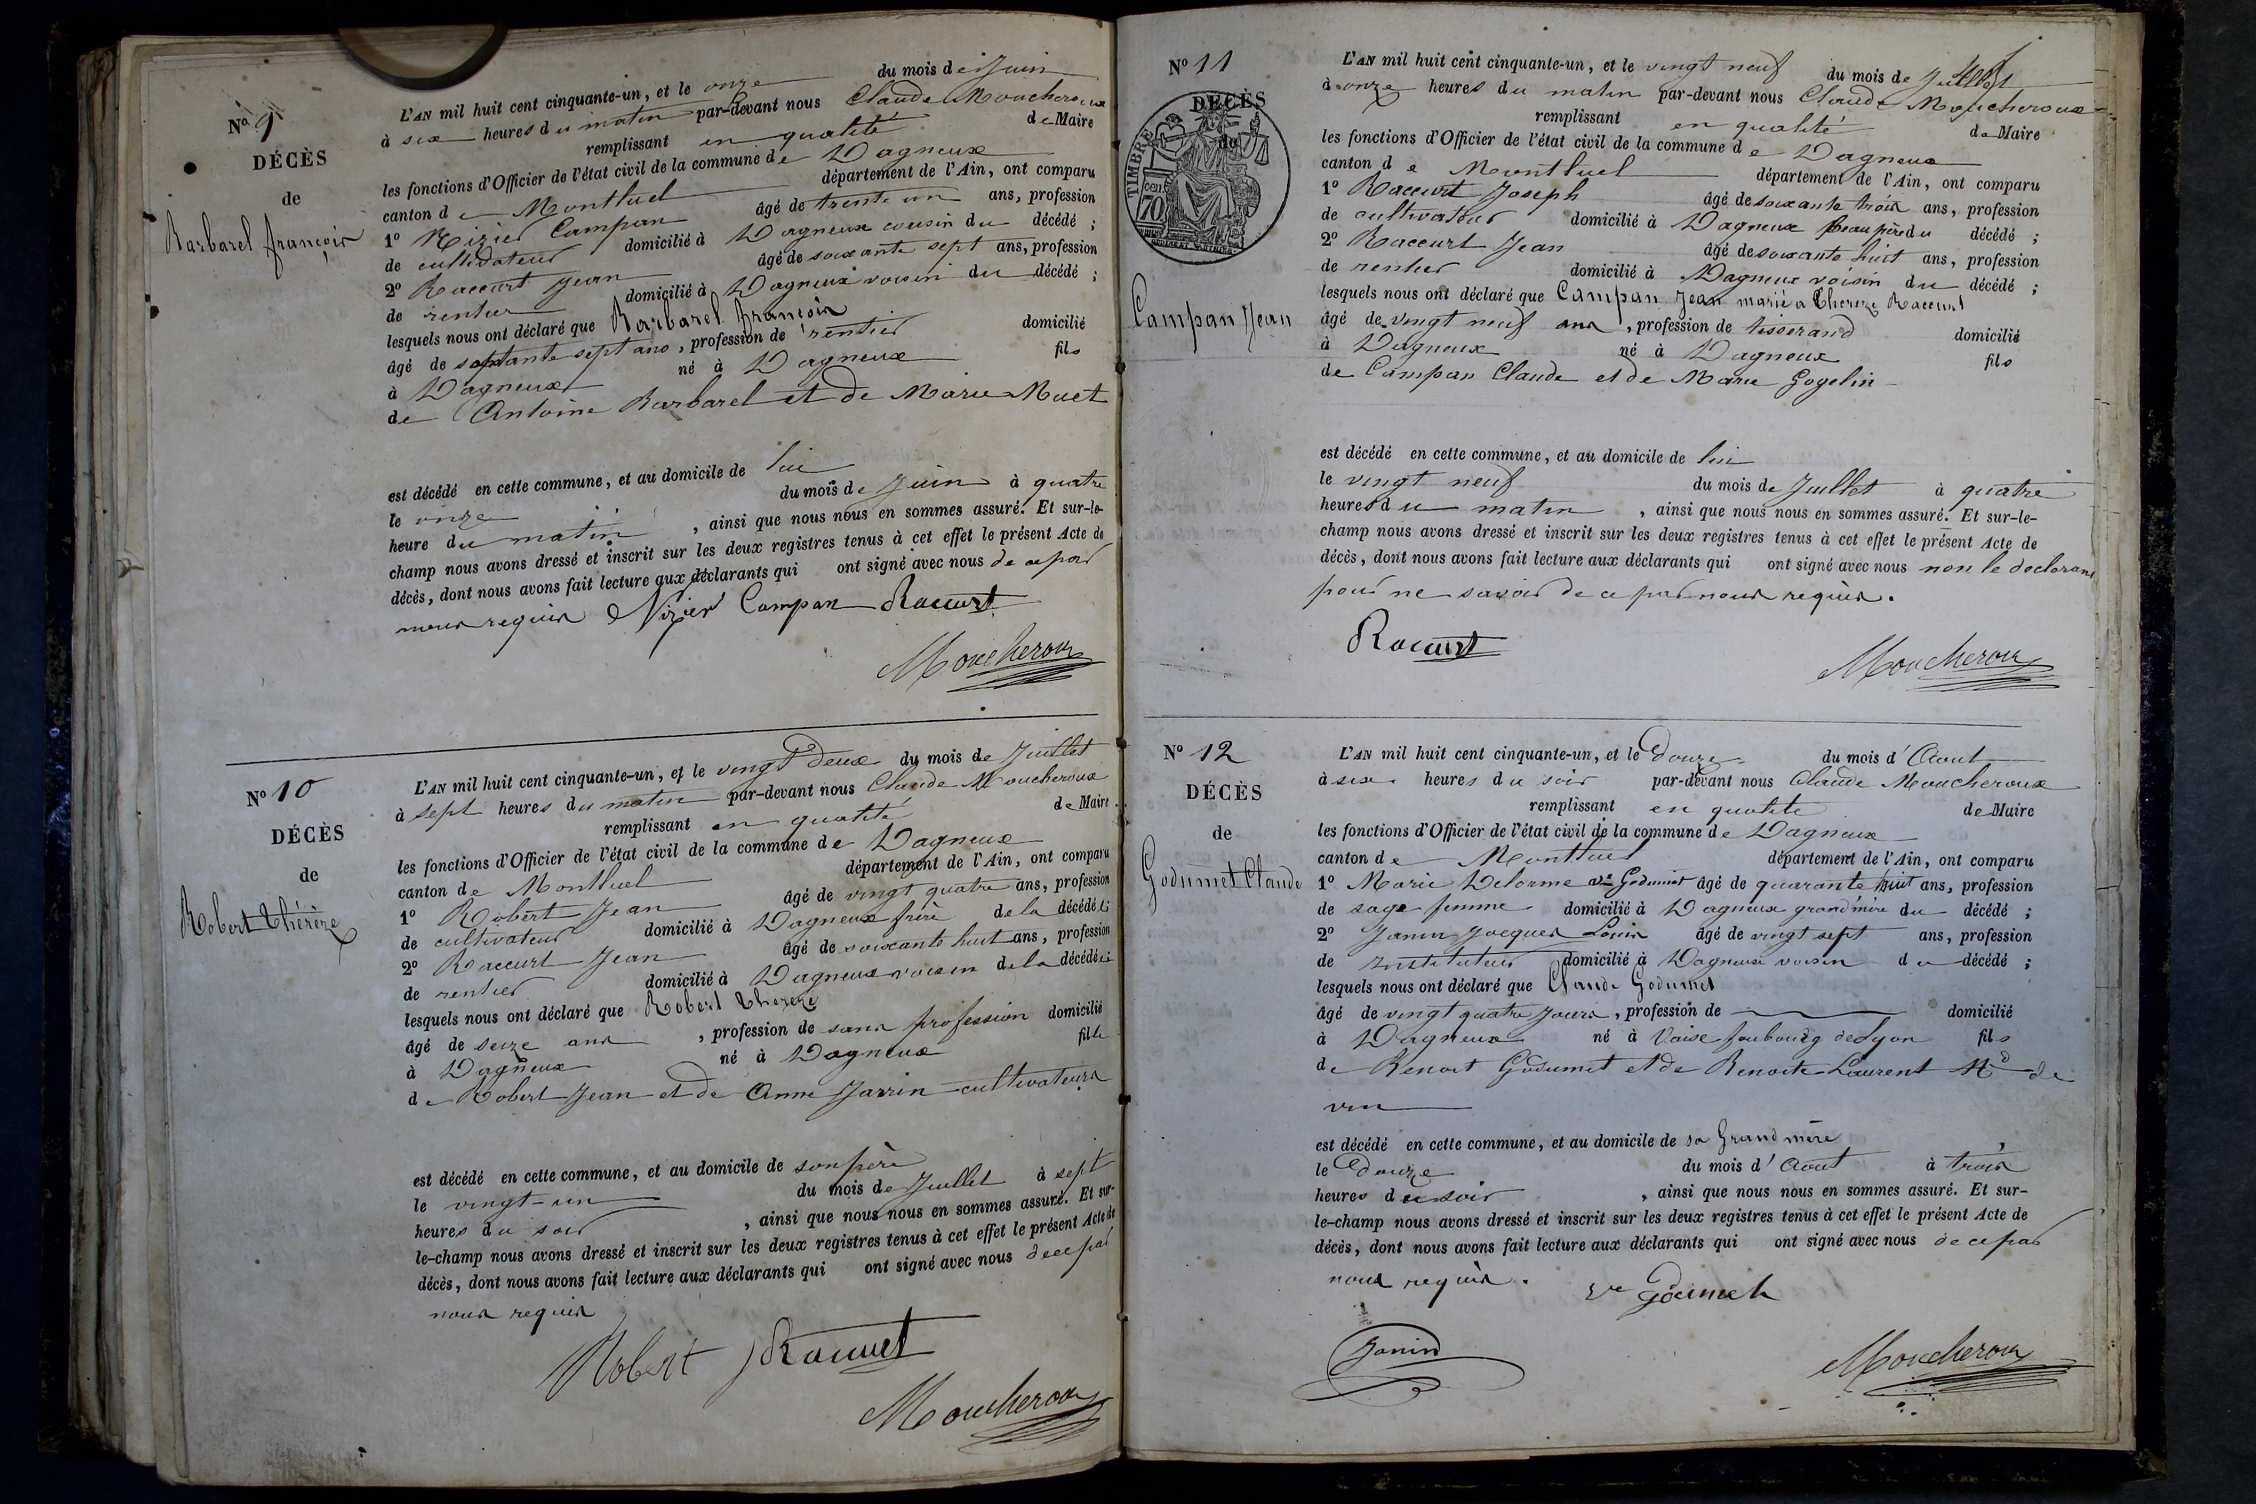 No 9
DÉCÈS
de
Barbarel françois
L'AN mil huit cent cinquante-un, et le onze du mois de Juin
à six heures du matin par-devant nous Claude Moucheroux
remplissant en qualité de Maire
les fonctions d'Officier de l'état civil de la commune de Dagneux
canton de Montluel département de l'Ain, ont comparu
1o Nizier Campan âgé de trente un ans, profession
de cultivateur domicilié à Dagneux cousin du décédé ;
2o Raccurt Jean âgé de soixante sept ans, profession
de rentier domicilié à Dagneux voisin du décédé ;
lesquels nous ont déclaré que Barbarel françois
âgé de septante sept ans, profession de rentier domicilié
à Dagneux né à Dagneux fils
de Antoine Barbarel et de Marie Muet
est décédé en cette commune, et au domicile de lui
le onze du mois de Juin à quatre
heure du matin, ainsi que nous nous en sommes assuré. Et sur-le-
champ nous avons dressé et inscrit sur les deux registres tenus à cet effet le présent Acte de
décès, dont nous avons fait lecture aux déclarants qui ont signé avec nous de ce par
nous requis Nizier Campan Raccurt
Moucheroux
No 10
DÉCÈS
de
Robert Thérèze
L'AN mil huit cent cinquante-un, et le vingt deux du mois de Juillet
à sept heures du matin par-devant nous Claude Moucheroux
remplissant en qualité de Maire
les fonctions d'Officier de l'état civil de la commune de Dagneux
canton de Montluel département de l'Ain, ont comparu
1o Robert Jean âgé de vingt quatre ans, profession
de cultivateur domicilié à Dagneux frère de la décédée ;
2o Raccurt Jean âgé de soixante huit ans, profession
de rentier domicilié à Dagneux voisin de la décédée ;
lesquels nous ont déclaré que Robert Thereze
âgé de seize ans, profession de sans profession domicilié
à Dagneux né à Dagneux fille
de Robert Jean et de Anne Jarrin cultivateurs
est décédé en cette commune, et au domicile de son père
le vingt-un du mois de Juillet à sept
heures du soir, ainsi que nous nous en sommes assuré. Et sur-
le-champ nous avons dressé et inscrit sur les deux registres tenus à cet effet le présent Acte de
décès, dont nous avons fait lecture aux déclarants qui ont signé avec nous de ce par
nous requis
Robert J Raccurt
Moucheroux
No 11
DÉCÈS
de
TIMBRE
70 cen
Campan Jean
L'AN mil huit cent cinquante-un, et le vingt neuf du mois de Juillet
à onze heures du matin par-devant nous Claude Moucheroux
remplissant en qualité de Maire
les fonctions d'Officier de l'état civil de la commune de Dagneux
canton de Montluel département de l'Ain, ont comparu
1o Raccurt Joseph âgé de soixante trois ans, profession
de cultivateur domicilié à Dagneux Beau père du décédé ;
2o Raccurt Jean âgé de soixante huit ans, profession
de rentier domicilié à Dagneux voisin du décédé ;
lesquels nous ont déclaré que Campan Jean marié a Thereze Raccurt
âgé de vingt neuf ans, profession de tisserand domicilié
à Dagneux né à Dagneux fils
de Campan Claude et de Marie Gogelin
est décédé en cette commune, et au domicile de lui
le vingt neuf du mois de Juillet à quatre
heures du matin, ainsi que nous nous en sommes assuré. Et sur-le-
champ nous avons dressé et inscrit sur les deux registres tenus à cet effet le présent Acte de
décès, dont nous avons fait lecture aux déclarants qui ont signé avec nous non le declarant
pour ne savoir de ce par nous requis.
Raccurt
Moucheroux
No 12
DÉCÈS
de
Godumet Claude
L'AN mil huit cent cinquante-un, et le Douze du mois d'Aout
à six heures du soir par-devant nous Claude Moucheroux
remplissant en qualité de Maire
les fonctions d'Officier de l'état civil de la commune de Dagneux
canton de Montluel département de l'Ain, ont comparu
1o Marie Delorme ve Godumet âgé de quarante huit ans, profession
de sage femme domicilié à Dagneux grand'mère du décédé ;
2o Janin Jacques Louis âgé de vingt sept ans, profession
de Instituteur domicilié à Dagneux voisin du décédé ;
lesquels nous ont déclaré que Claude Godumet
âgé de vingt quatre jours, profession de domicilié
à Dagneux né à Vaise faubourg de Lyon fils
de Benoit Godumet et de Benoite Laurent Md de
vin
est décédé en cette commune, et au domicile de sa Grand mère
le Douze du mois d'Aout à trois
heures du soir, ainsi que nous nous en sommes assuré. Et sur-
le-champ nous avons dressé et inscrit sur les deux registres tenus à cet effet le présent Acte de
décès, dont nous avons fait lecture aux déclarants qui ont signé avec nous de ce par
nous requis.
Ve
Janin
Moucheroux